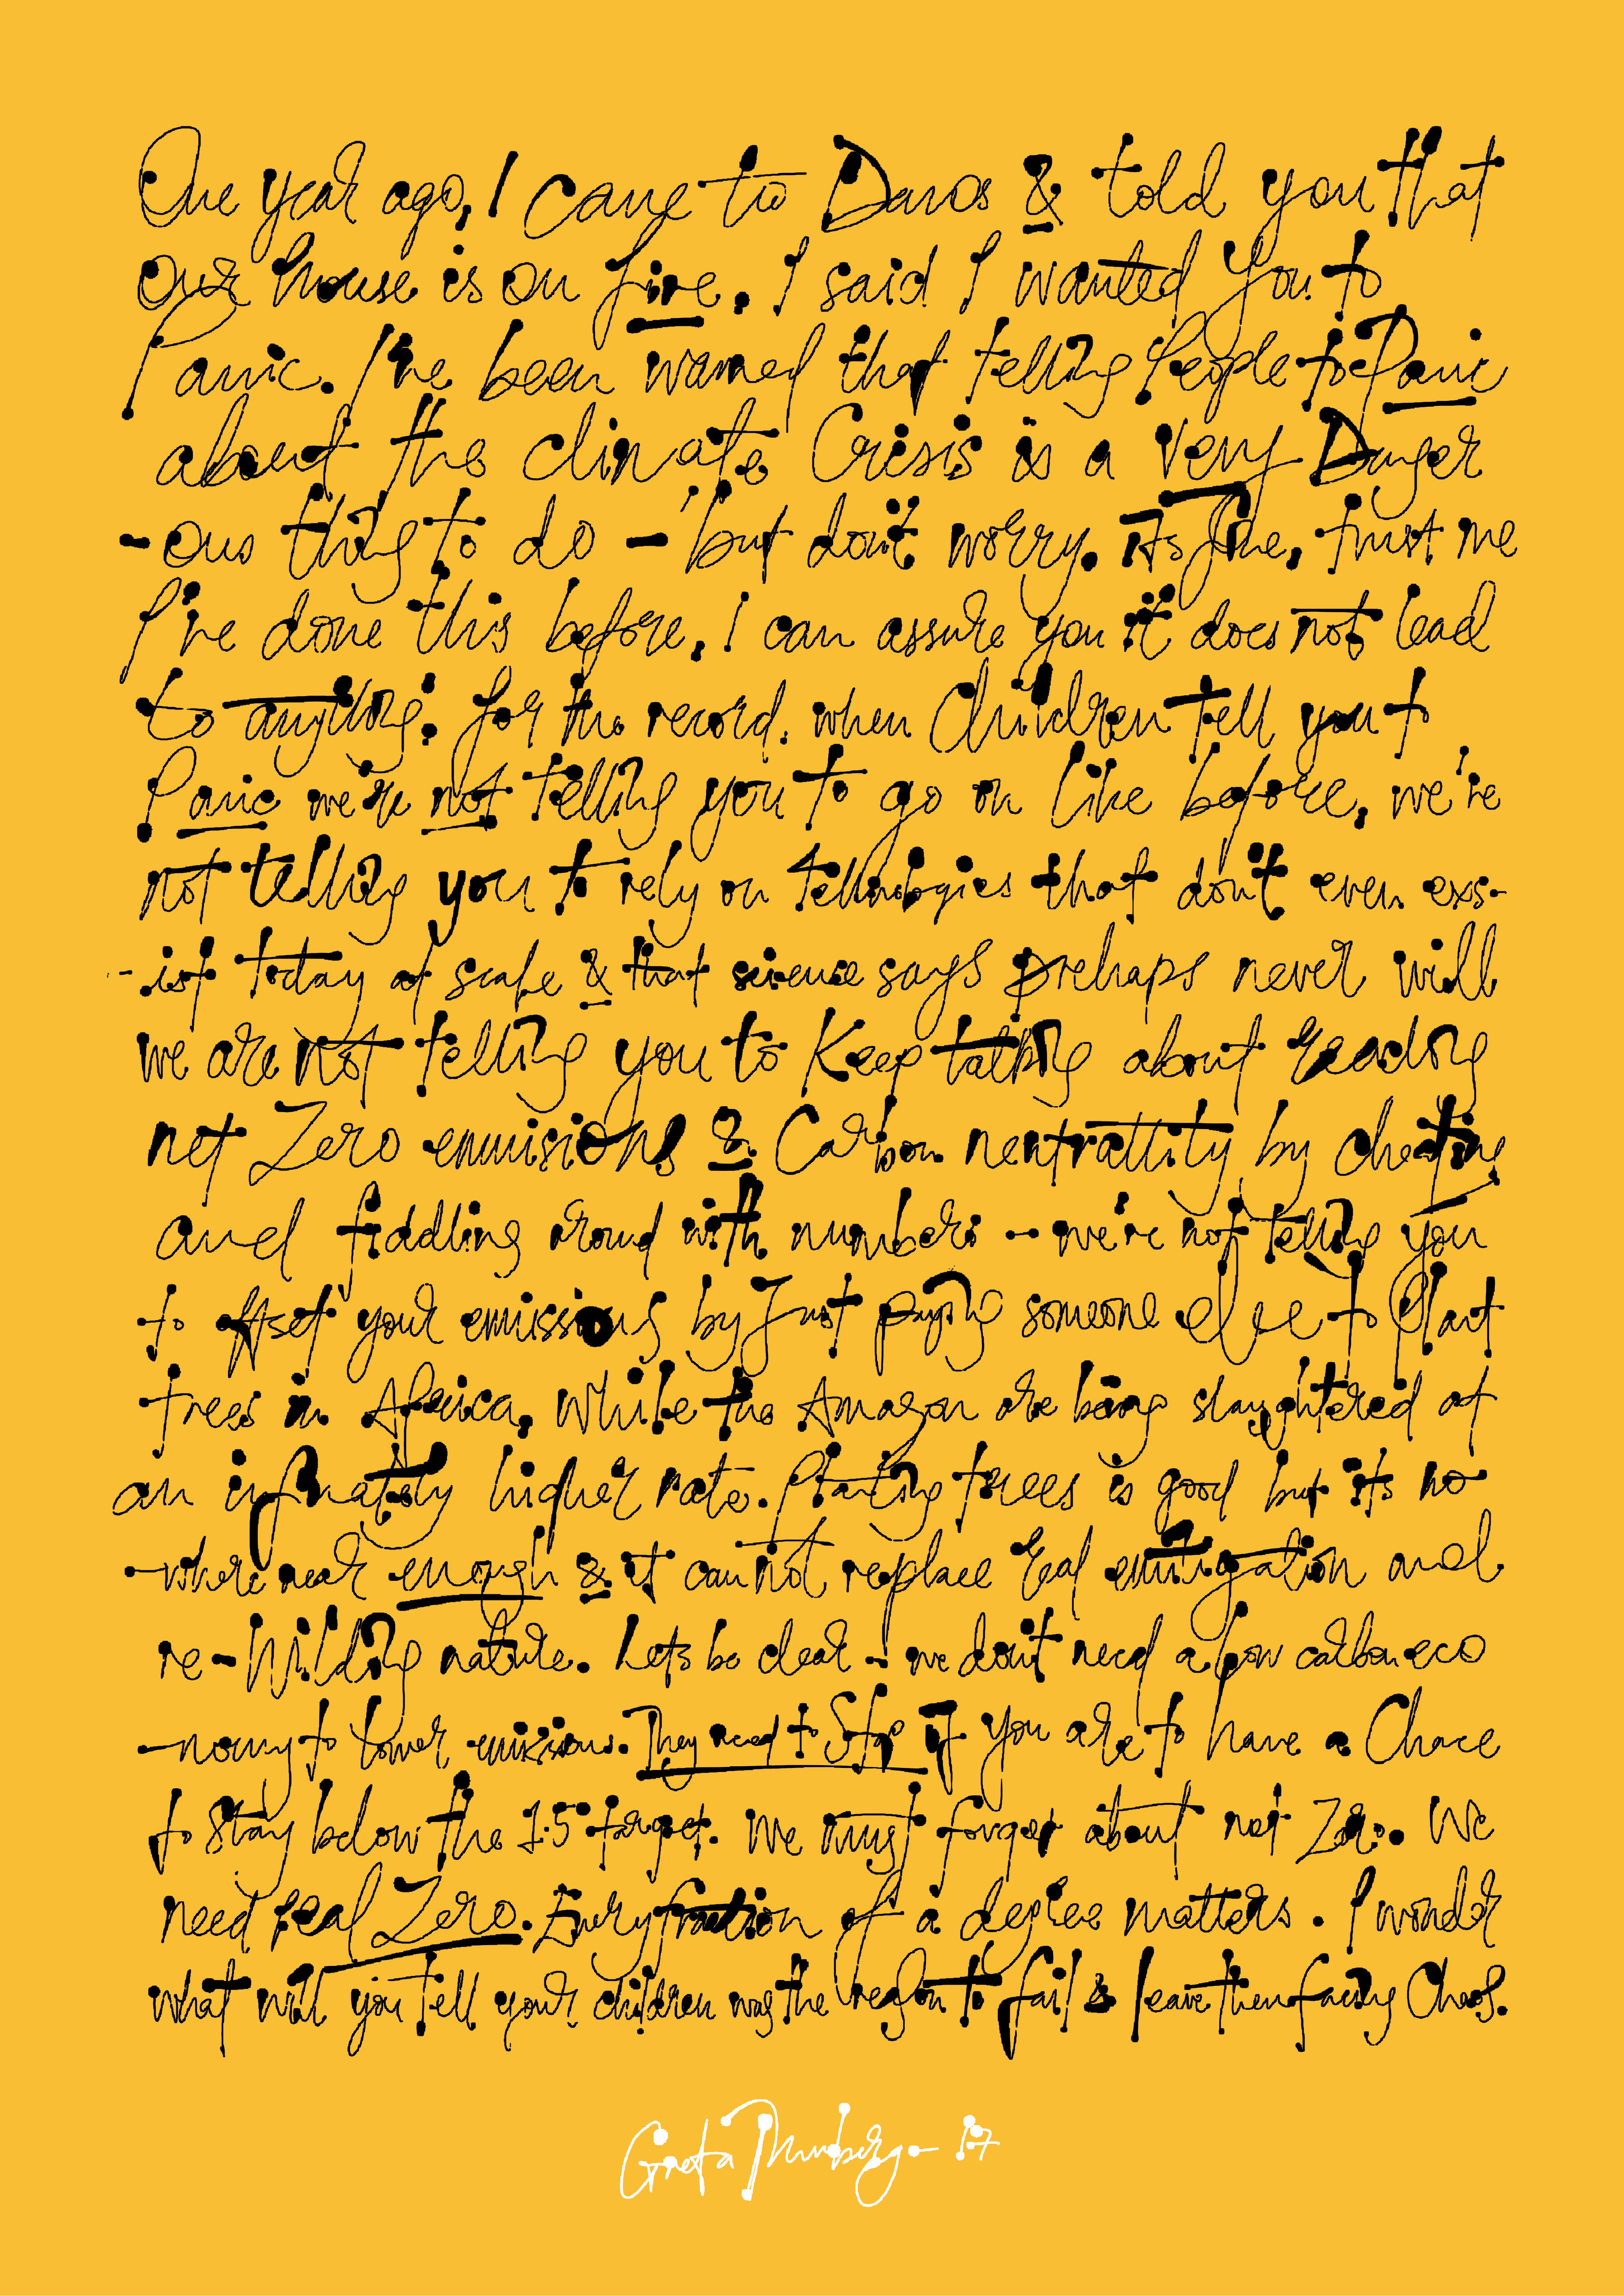 One year ago, I came to Davos & told you that
our house is on fire. I said I wanted you to
Panic. I've been warned that telling People to Panic
about the climate Crisis is a very Danger
-ous thing to do - but don't worry. its fine, trust me
I've done this before. I can assure you it does not lead
to anything. for the record. when Children tell you to
Panic we're not telling you to go on like before, we're
not telling you to rely on that don't even exs-
-ist today at scale & that science says prehaps never will
we are not telling you to Keep talking about
net Zero emmisions & Carbon neutrattity by cheating
and fiddling around with numbers - we're not telling you
to offset your emissions by Just paying someone else to Plant
trees in Africa. While the Amazon are being slaughtered at
an infinately higher rate. Planting trees is good but its no
-where near enough & it cannot replace real and
re-Wilding nature. Lets be clear - we don't need a low carbon eco
-nomy to lower emissions. They need to Stop if you are to have a Chace
to Stay below the 1.5 target. We must forget about net Zero. We
need real Zero. Every fraction of a degree matters. I wonder
what will you tell your children was the reason to fail & leave them facing Chaos.
Greta Thunberg - 17